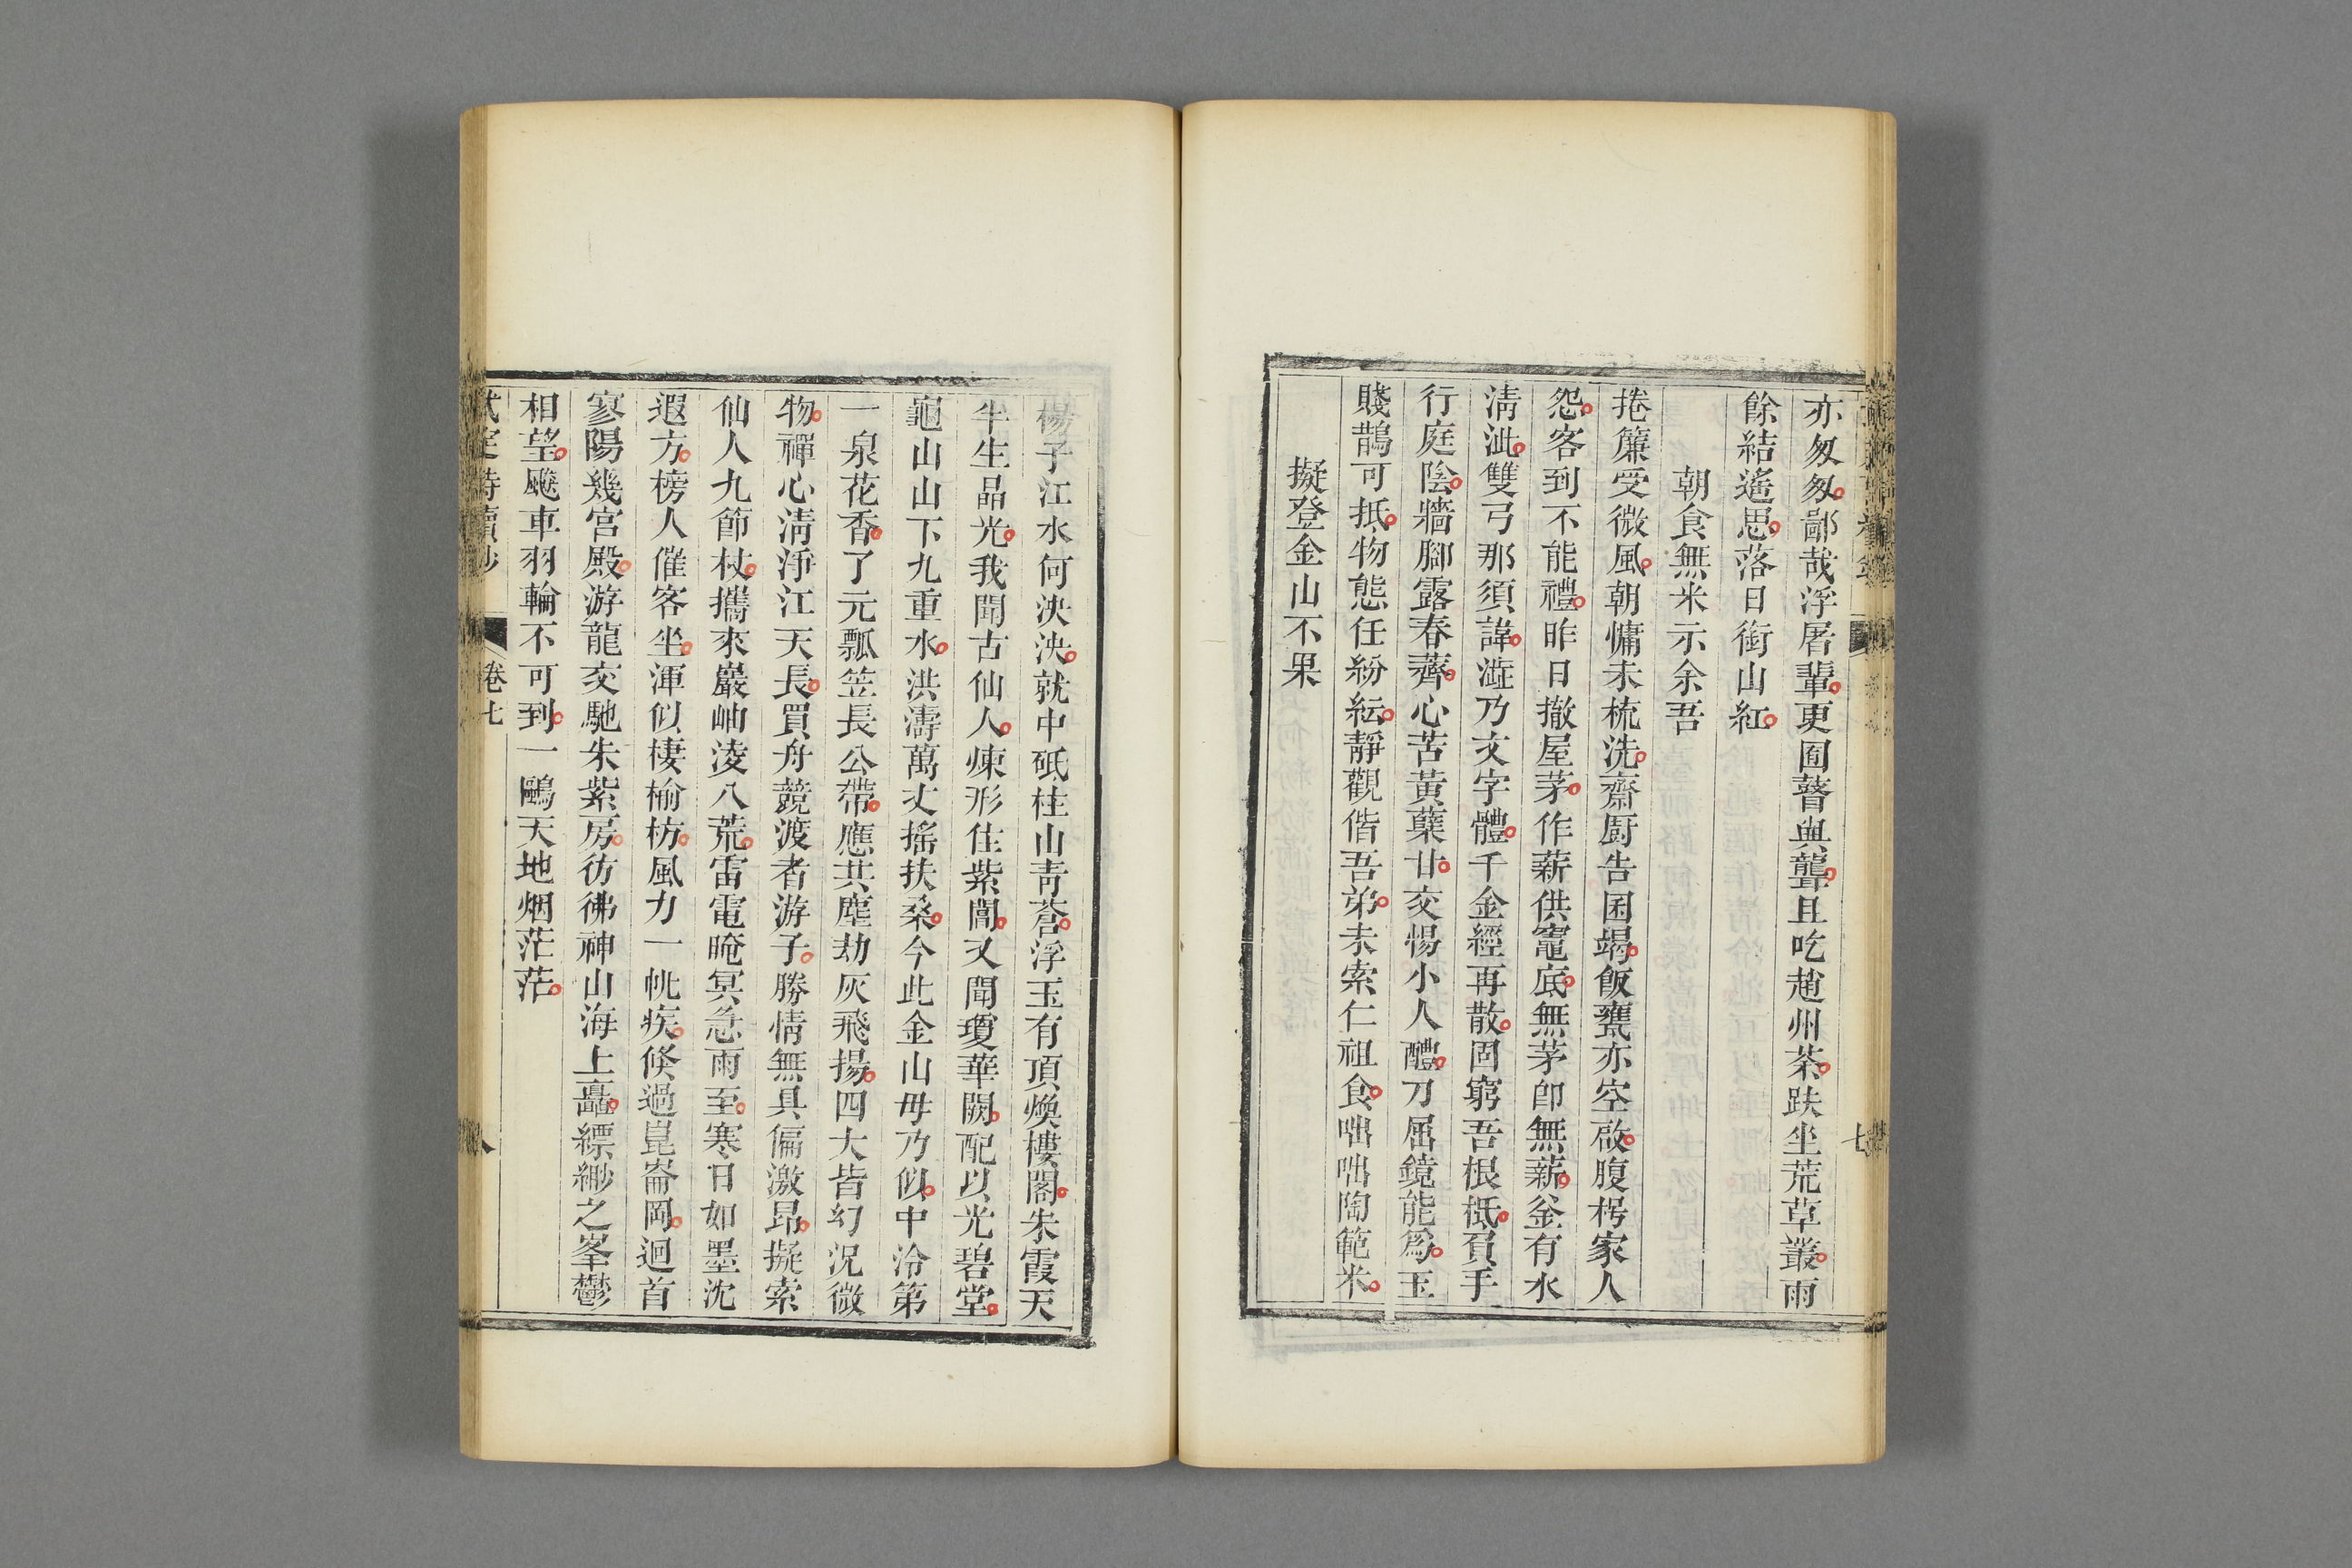 亦匆匆鄙哉浮屠輩更囿瞽與聾且吃趙州茶趺坐荒草叢雨
餘結遙思落日銜山紅
朝食無米示余吾
捲簾受微風朝慵未梳洗齋厨告困竭飯甕亦空啟腹枵家人
怨客到不能禮昨日撤屋茅作薪供竈底無茅卽無薪釜有水
淸泚雙弓那須諱澁乃文字體千金經再散固窮吾根柢負手
行庭陰牆腳露春薺心苦黃蘗甘交惕小人醴刀屈鏡能爲玉
賤鵲可抵物態任紛紜靜觀偕吾弟未索仁祖食咄咄陶範米
擬登金山不果
七
楊子江水何泱泱就中砥柱山靑蒼浮玉有頂煥樓閣朱霞天
半生晶光我聞古仙人煉形住紫閬又聞瓊華闕配以光碧堂
龜山山下九重水洪濤萬丈搖扶桑今此金山毋乃似中泠第
一泉花香了元瓢笠長公帶應共塵劫灰飛揚四大皆幻況微
物禪心淸淨江天長買舟競渡者游子勝情無具偏激昂擬索
仙人九節杖攜來巖岫淩八荒雷電晻冥急雨至寒日如墨沈
遐方榜人催客坐渾似棲榆枋風力一帆疾倏過崑崙岡迴首
寥陽幾宮殿游龍交馳朱紫房彷彿神山海上矗縹緲之峯鬱
相望飈車羽輪不可到一鷗天地烟茫茫
卷七
八